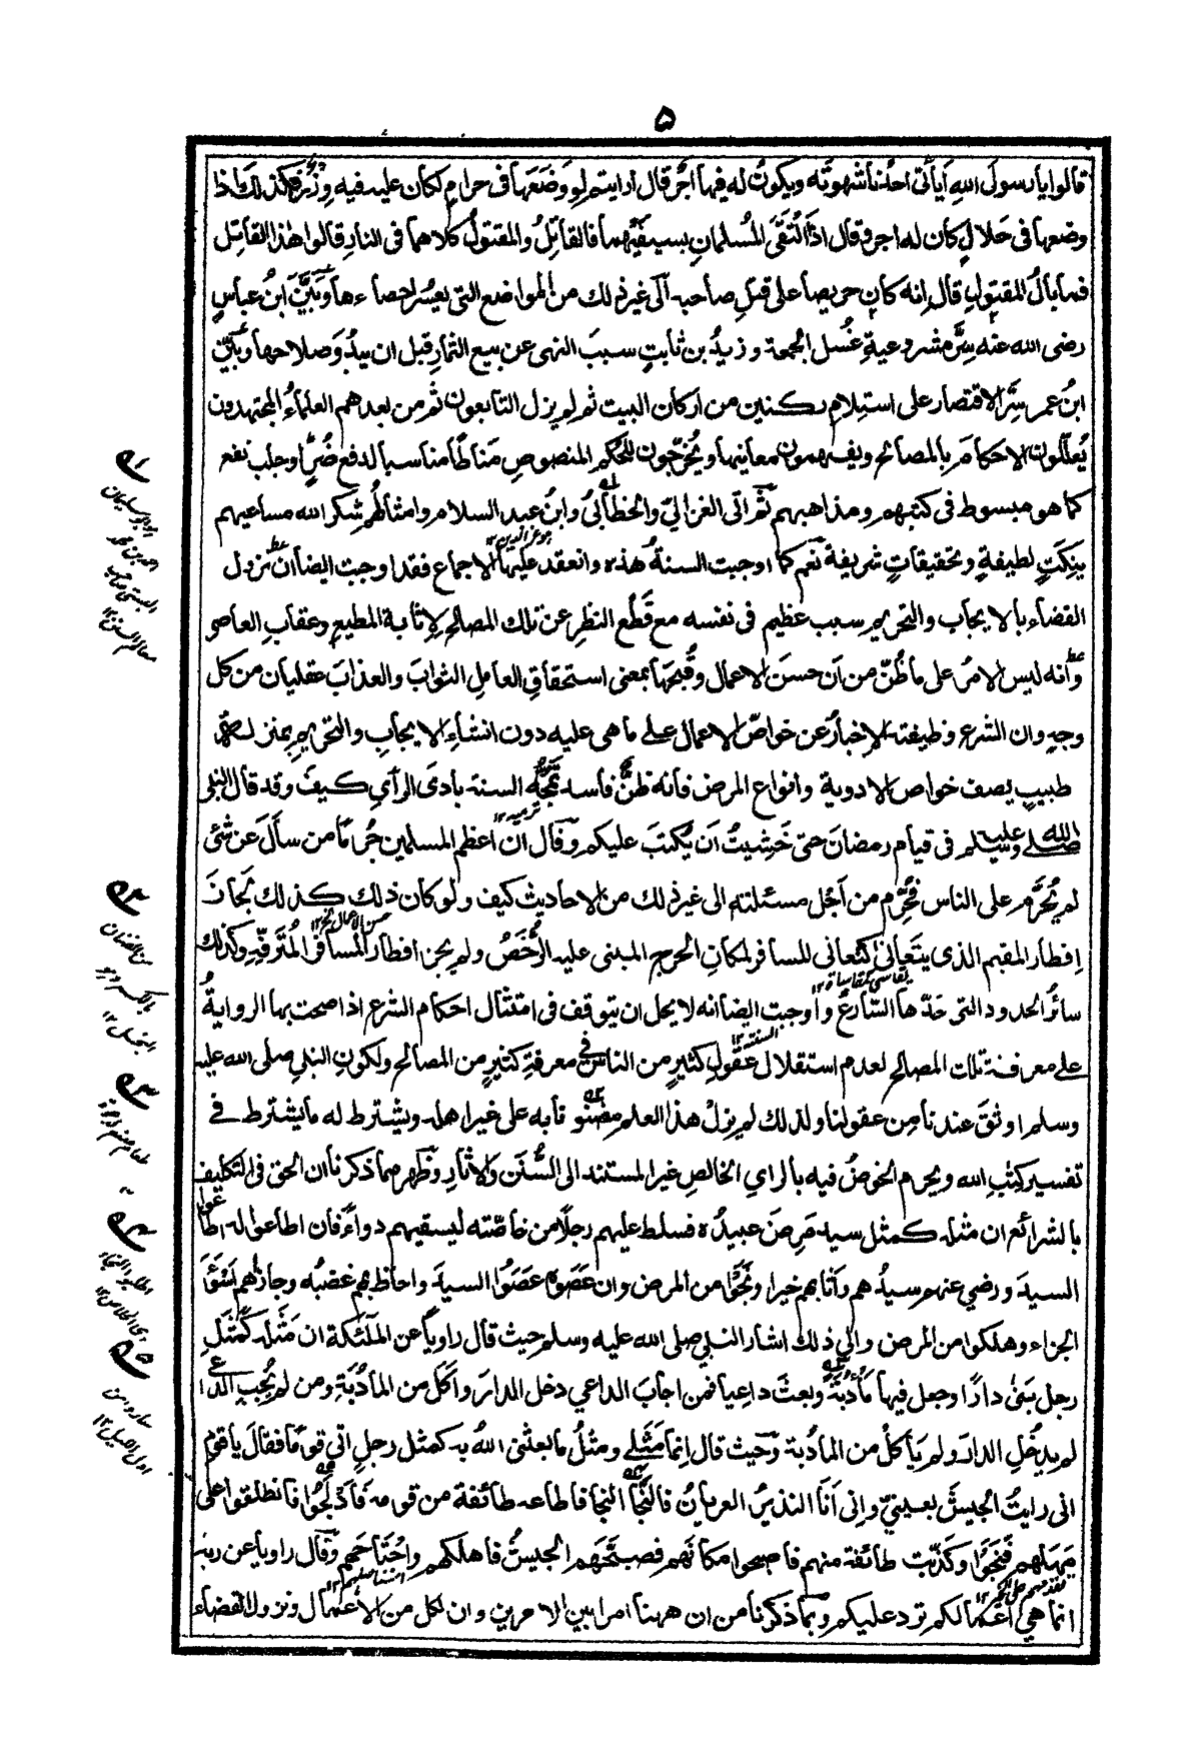 ۵
قالوا يا رسول الله أيأتى احدنا شهوته ويكون له فيها اجر قال ارايتم لو وضعها فى حرام لكان عليه فيه وزر فكذلك اذا
وضعها فى حلال كان له اجر وقال اذا التقى المسلمان بسيفيهما فالقاتل والمقتول كلاهما فى النار قالوا هذا القاتل
فما بال المقتول قال انه كان حريصا على قتل صاحبه الى غير ذلك من المواضع التى يعسر احصاءها وبيّن ابن عباس
رضى الله عنه سرّ مشروعية غسل الجمعة وزيد بن ثابت سبب النهى عن بيع الثمار قبل ان يبدو صلاحها وبيّن
ابن عمر سرّ الاقتصار على استلام ركنين من اركان البيت ثم لم يزل التابعون ثم من بعدهم العلماء المجتهدون
يعللون الاحكام بالمصالح ويفهمون معانيها ويخرّجون للحكم المنصوص مناطا مناسبا لدفع ضرّ او جلب نفع
كما هو مبسوط فى كتبهم ومذاهبهم ثم اتى الغزالى والخطابى وابن عبد السلام وامثالهم شكر الله مساعيهم
بنكت لطيفة وتحقيقات شريفة نعم كما اوجبت السنة هذه وانعقد عليها الاجماع فقد اوجبت ايضا ان نزول
القضاء بالايجاب والتحريم سبب عظيم فى نفسه مع قطع النظر عن تلك المصالح لاثابة المطيع وعقاب العاصى
وانه ليس الامر على ما ظن من ان حسن الاعمال وقبحها بمعنى استحقاق العامل الثواب والعذاب عقليان من كل
وجه وان الشرع وظيفته الاخبار عن خواص الاعمال على ما هى عليه دون انشاء الايجاب والتحريم بمنزلة
طبيب يصف خواص الادوية وانواع المرض فانه ظن فاسد تمجّه السنة بادى الرأى كيف وقد قال النبى
صلى الله عليه وسلم فى قيام رمضان حتى خشيت ان يكتب عليكم وقال ان اعظم المسلمين جرما من سأل عن شئ
لم يحرّم على الناس فحرّم من أجل مسئلته الى غير ذلك من الاحاديث كيف ولو كان ذلك كذلك لجاز
افطار المقيم الذى يتعانى كتعانى المسافر لمكان الحرج المبنى عليه الرخص ولم يجز افطار المسافر المترفّه وكذلك
سائر الحدود التى حدّها الشارع واوجبت ايضا انه لا يحل ان يتوقف فى امتثال احكام الشرع اذا صحت بها الرواية
على معرفة تلك المصالح لعدم استقلال عقول كثير من الناس فى معرفة كثير من المصالح ولكون النبى صلى الله عليه
وسلم اوثق عندنا من عقولنا ولذلك لم يزل هذا العلم مضنونا به على غير اهله ويشترط له ما يشترط فى
تفسير كتاب الله ويحرم الخوض فيه بالراى الخالص غير المستند الى السنن والاثار وظهر مما ذكرنا ان الحق فى التكليف
بالشرائع ان مثله كمثل سيد مرض عبيده فسلط عليهم رجلا من خاصّته ليسقيهم دواء فان اطاعوا له اطاعوا
السيد ورضى عنهم سيدهم واثابهم خيرا ونجوا من المرض وان عصوه عصوا السيد واحاط بهم غضبه وجازاهم أسوأ
الجزاء وهلكوا من المرض والى ذلك اشار النبى صلى الله عليه وسلم حيث قال راويا عن الملائكة ان مثله كمثل
رجل بنى دارا وجعل فيها مأدبة وبعث داعيا فمن اجاب الداعى دخل الدار وأكل من المأدبة ومن لم يجب الداعى
لم يدخل الدار ولم يأكل من المأدبة وحيث قال انما مثلى ومثل ما بعثنى الله به كمثل رجل اتى قوما فقال يا قوم
انى رايت الجيش بعينىّ وانى أنا النذير العريان فالنجا النجا فاطاعه طائفة من قومه فادلجوا فانطلقوا على
مهلهم فنجوا وكذبت طائفة منهم فاصبحوا مكانهم فصبّحهم الجيش فاهلكهم واجتاحهم وقال راويا عن ربه
انما هى اعمالكم ترد عليكم وبما ذكرنا من ان ههنا امرا بين الامرين وان لكل من الاعمال ونزول القضاء